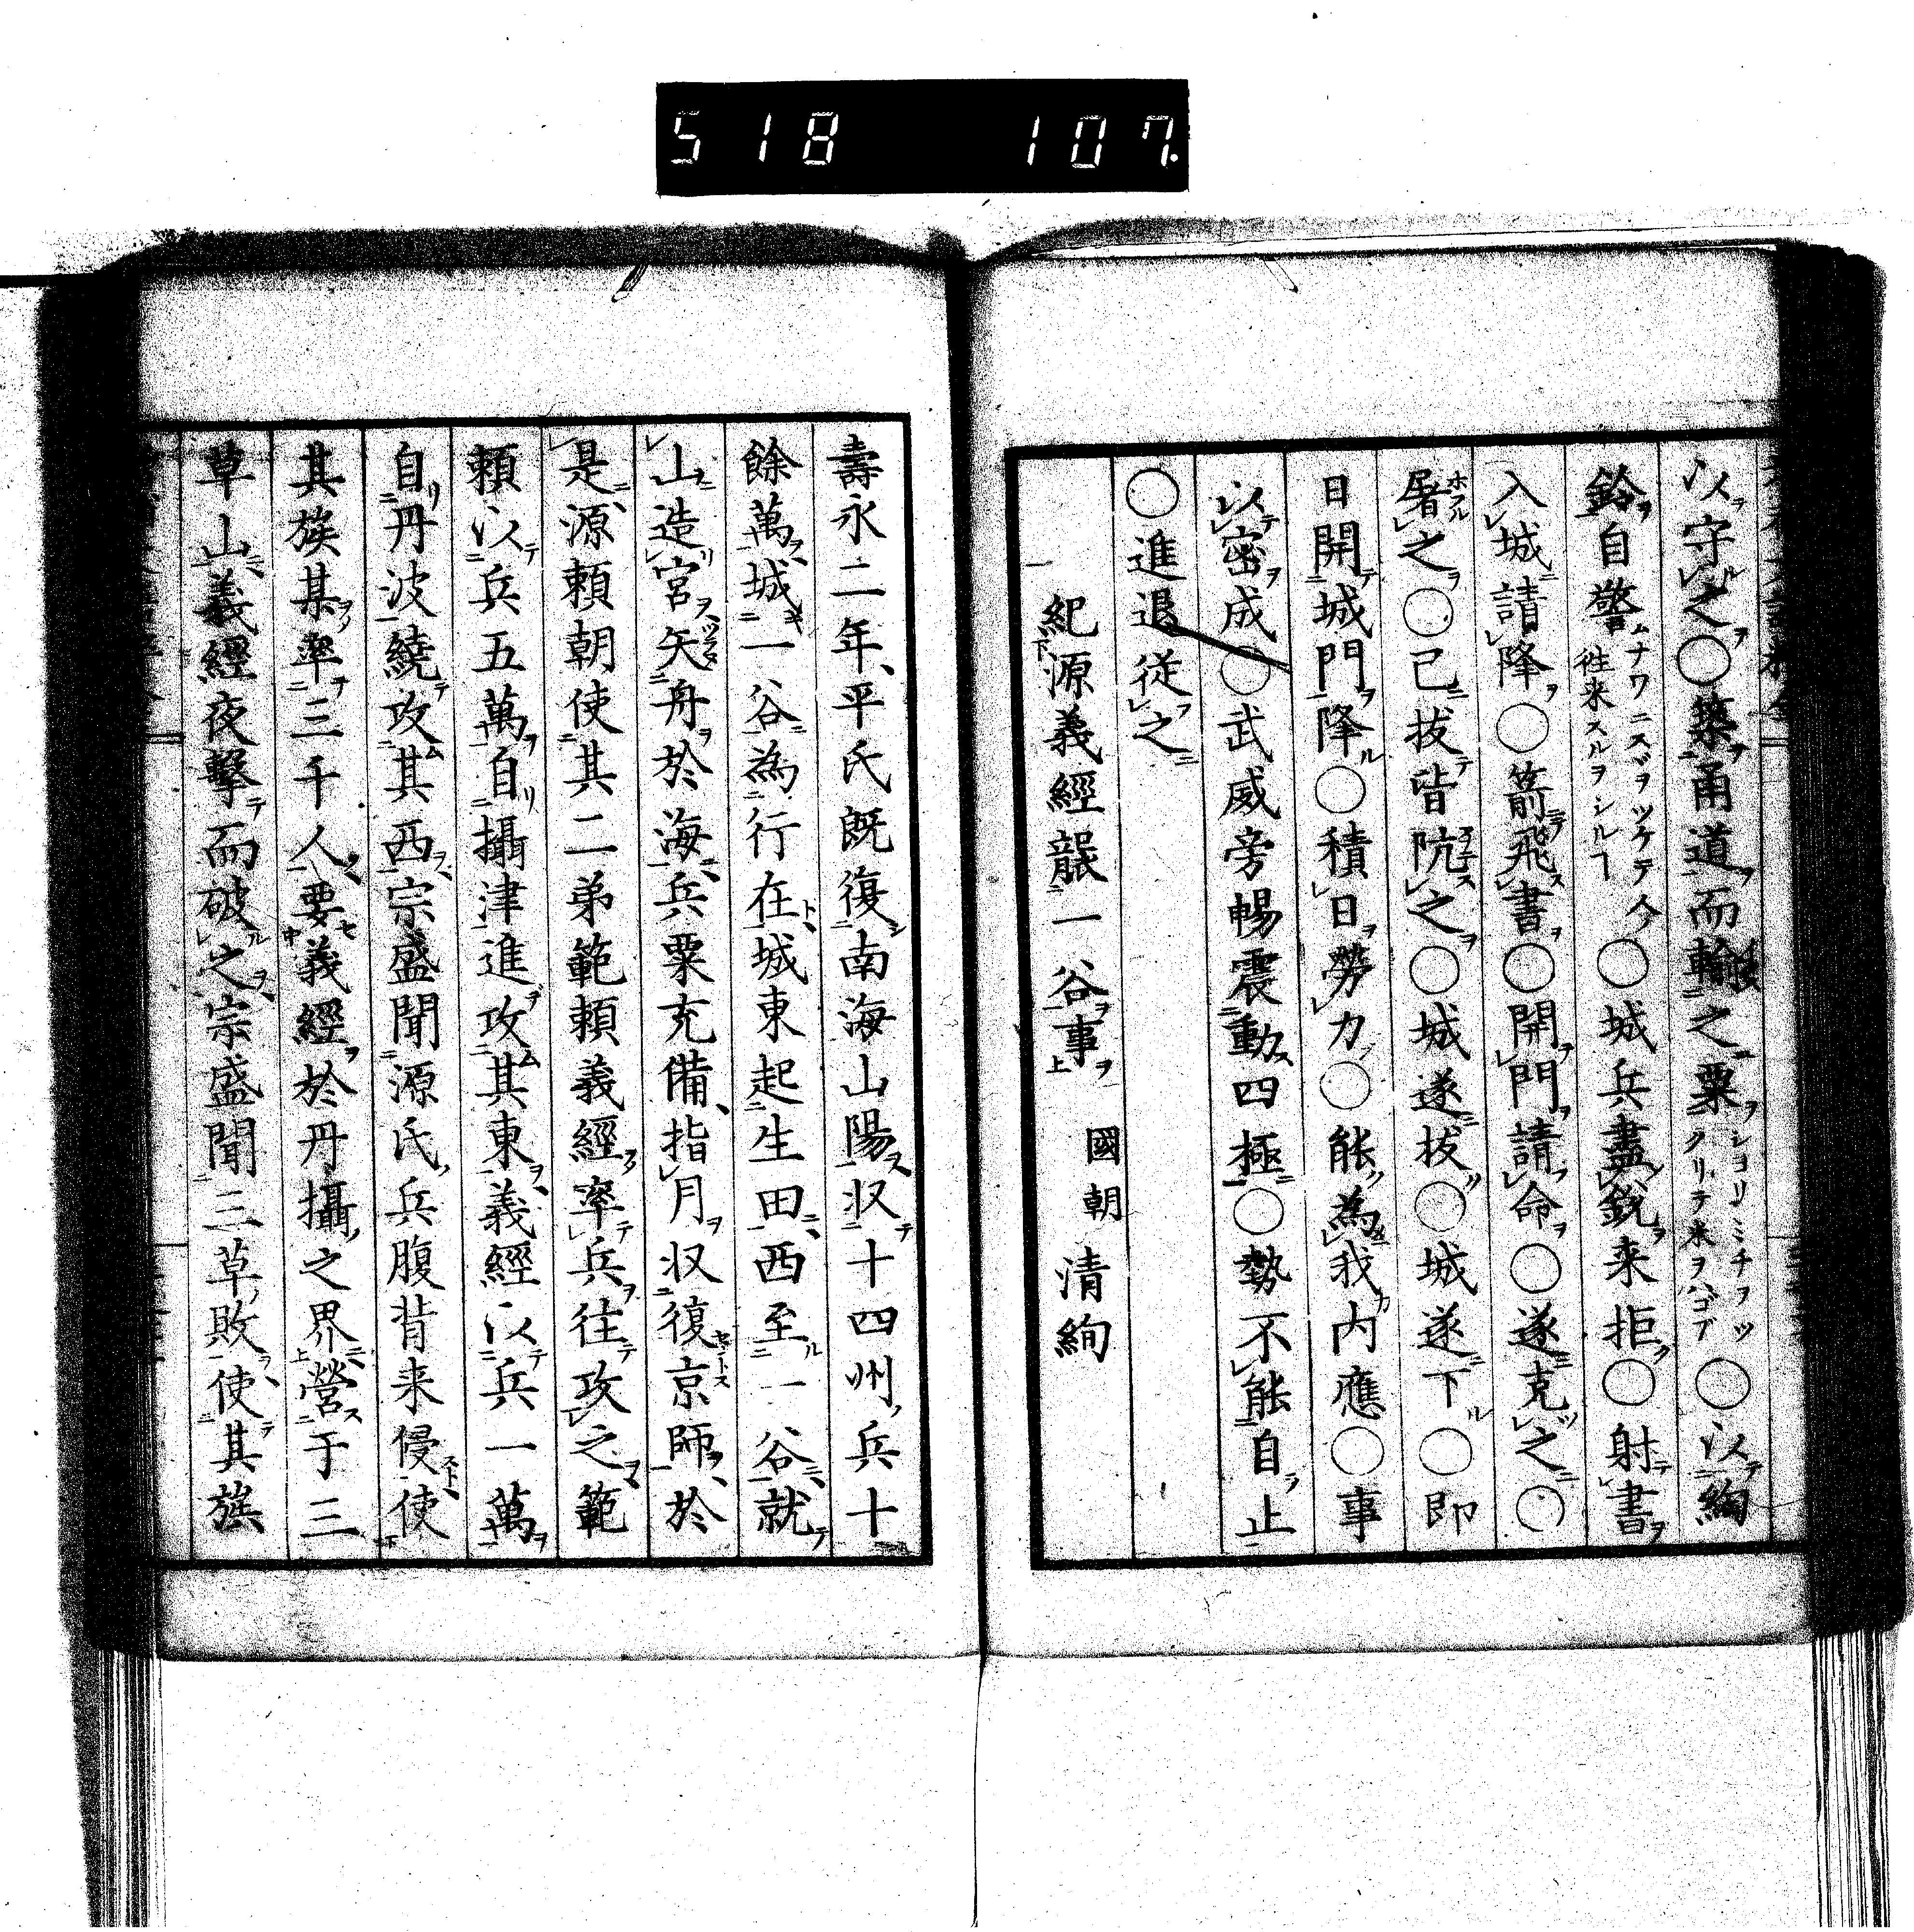 518 107.
以守之○築甬道而輸之粟シヨリミチヲツクリテ米ヲハコブ○以絢
鈴自警ムナワニスヾヲツケテ人往来スルヲシル○城兵盡鋭来拒○射書
入城請降○箭飛書○開門請命○遂克之○
屠之○已抜皆阬之○城遂抜○城遂下○即
日開城門降○積日勞力○能為我内應○事
以密成○武威旁暢震動四極○勢不能自止
○進退従之
紀源義經襲一谷事 國朝 清絢
壽永二年、平氏既復南海山陽収十四州兵十
餘萬城一谷為行在城東起生田西至一谷就
山造宮矢舟於海兵粟充備、指月収復京師於
是源頼朝使其二弟範頼義經率兵往攻之範
頼以兵五萬自攝津進攻其東義經以兵一萬
自丹波繞攻其西宗盛聞源氏兵腹背来侵使
其族某率三千人要義經於丹攝之界營于三
草山義經夜擊而破之宗盛聞三草敗使其族